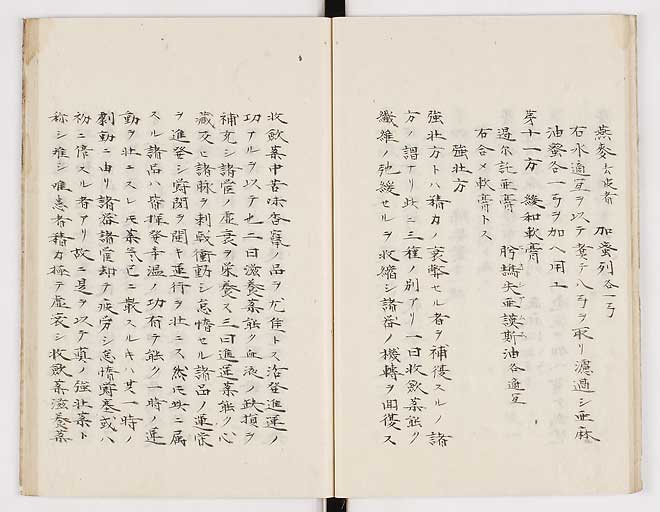 燕麥去皮者 加蜜列各一弓
右水適宜ヲ以テ煑テ八弓ヲ取リ濾過シ亜麻
油蜜各一弓ヲ加ヘ用ユ
第十一方 緩和軟膏
遏尓託亜膏 肸鷸失亜謨斯油各適宜
右合メ軟膏トス
強壮方
強壮方トハ精力ノ衰弊セル者ヲ補復スルノ諸
方ノ謂ナリ此ニ三種ノ別アリ一曰收歛薬能ク
纎維ノ弛緩セルヲ收縮シ諸器ノ機轉ヲ回復ス
收歛薬中苦味香竄ノ品ヲ尤佳トス活発進運ノ
功アルヲ以テ也二曰滋養薬能ク血液ノ缺損ヲ
補充シ諸管ノ虚衰ヲ栄養ス三曰進運薬能ク心
蔵及ヒ諸脉ヲ刺戟衝動シ怠惰セル諸品ノ運営
ヲ進発シ欝閉ヲ開キ運行ヲ壮ニス然モ此ニ属
スル諸品ハ揮発辛温ノ功有テ能ク一時ノ運
動ヲ壮ニスレモ薬気已ニ散スルキハ其一時ノ
動ニ由リ諸器諸管却テ疲労シ怠惰欝塞或ハ
初ニ倍スル者アリ故ニ是ヲ以テ真ノ強壮薬ト
称シ難シ唯患者精力極テ虚衰シ收歛薬滋養薬